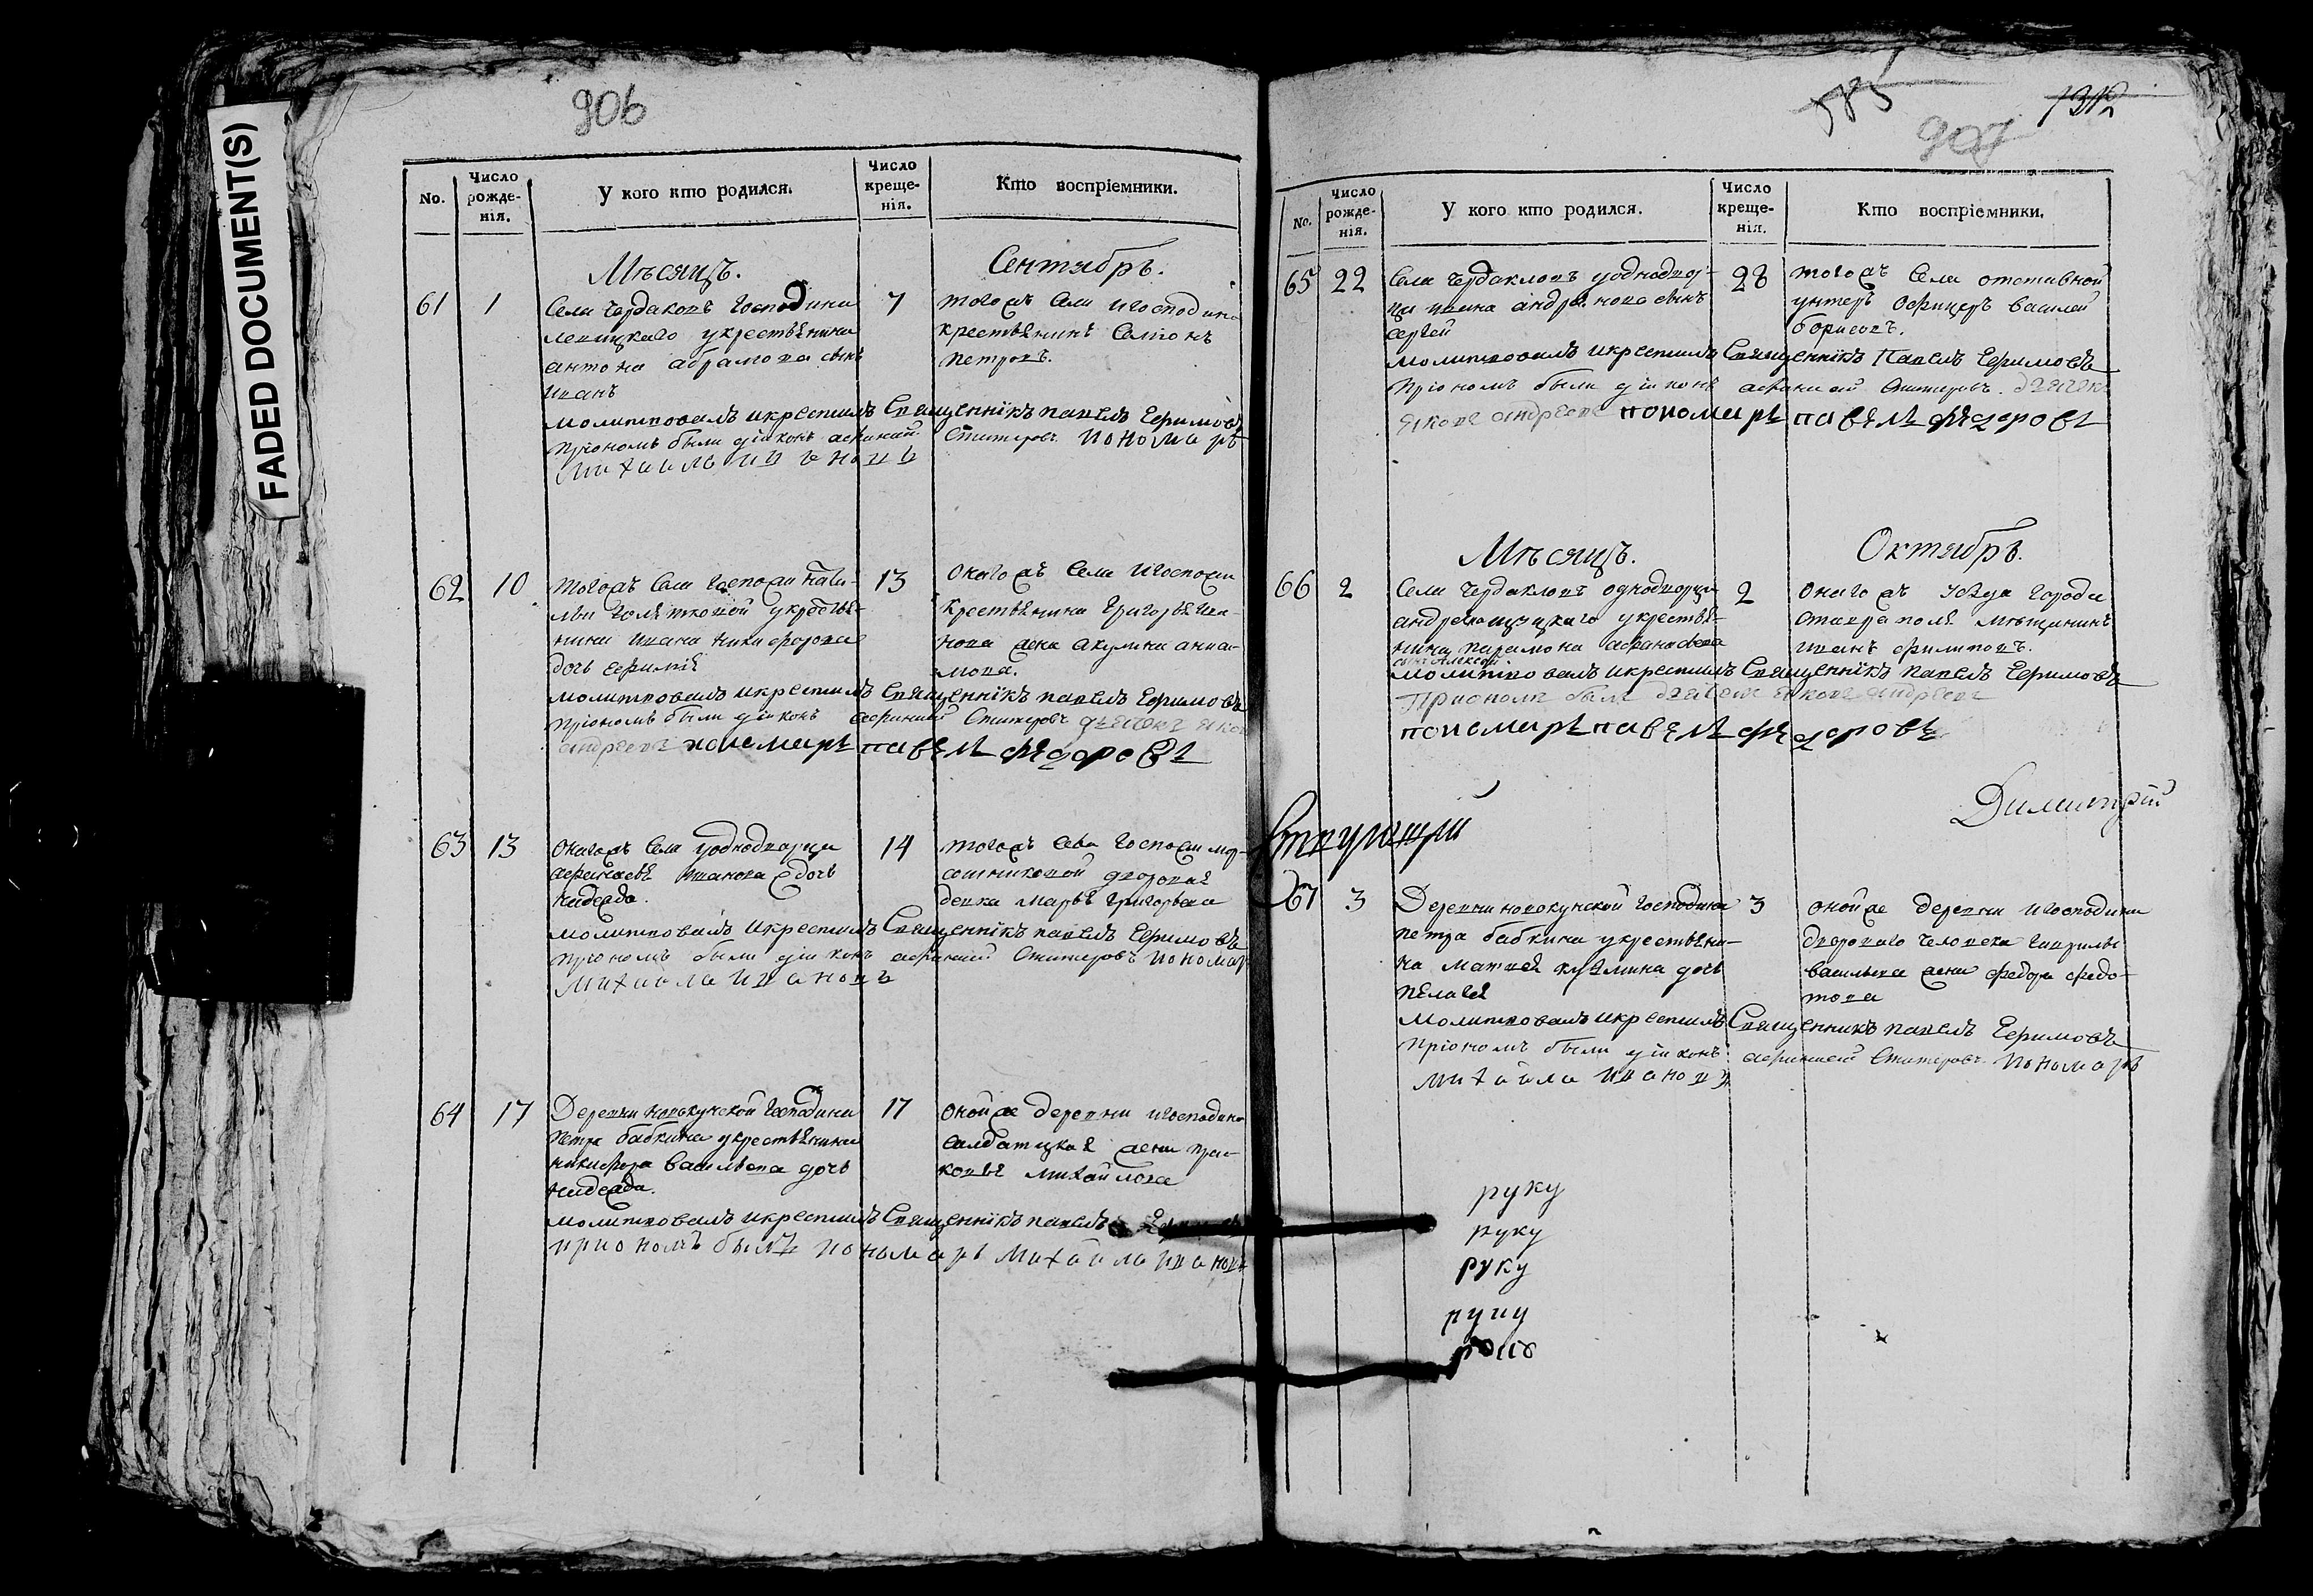 FADED DOCUMENT(S)
906
No.
Число рожде-нія.
У кого кто родился.
Число креще-нія.
Кто воспріемники.
Мѣсяцъ.
Сентябрь.
61 1
Села чердаковъ господина
у крестьянина
антона абрамова сынъ
иванъ
7
тогожъ села игосподина
крестьянинъ
петровъ.
молитвовалъ икрестилъ Священнікъ павелъ Ефимовъ
пріономъ были діаконъ пономарь
михаила ивановъ
62 10
тогожъ села госпожи
у крестья-
нина ивана никифорова
дочь
13
онагожъ села игоспожи
крестьянина григорья ива-
нова жена акулина
молитвовалъ икрестилъ Священнікъ павелъ Ефимовъ
пріономъ были діаконъ дьячекъ
андреевъ пономарь павелъ федоровъ
63 13
онагожъ села уоднодворца
иванова дочь
надежда.
14
тогожъ села госпожи
дворовая
девка марья григорьева
молитвовалъ икрестилъ Священнікъ павелъ Ефимовъ
пріономъ были діаконъ пономарь
михаила ивановъ
64 17
Деревни господина
петра бабкина укрестьянина
никифора васильева дочь
надежда.
17
онойже деревни игосподина
салдатская жена прас-
ковья михайлова
молитвовалъ икрестилъ Священнікъ павелъ
приономъ былъ пономарь михаила ивановъ
585
1312
907
No.
Число рожде-нія.
У кого кто родился.
Число креще-нія.
Кто воспріемники.
65 22
Села чердаковъ уоднодвор-
ца ивана сынъ
сергей
28
тогожъ села отставной
унтеръ офицеръ василей
борисовъ.
молитвовалъ икрестилъ Священнікъ Павелъ Ефимовъ
пріономъ были діаконъ дьячекъ
яковъ андреевъ пономарь павелъ федоровъ
Мѣсяцъ.
Октябрь.
66 2
Села однодворца
укрестья-
нина парамона
сынъ алексей
2
онагожъ уезда города
ставрополя мѣщанинъ
иванъ филиповъ.
молитвовалъ икрестилъ Священнікъ павелъ Ефимовъ
Приономъ былъ дьячекъ яковъ андреевъ
пономарь павелъ федоровъ
Димитрій
67 3
Деревни господина
петра бабкина укрестьяни-
на матвея кузмина дочь
пелагея
3
онойже деревни игосподина
двороваго человека гаврилы
васильева жена федора федо-
това
Молитвовалъ икрестилъ Священникъ павелъ Ефимовъ
пріономъ были діаконъ пономарь
михаила ивановъ
руку
руку
руку